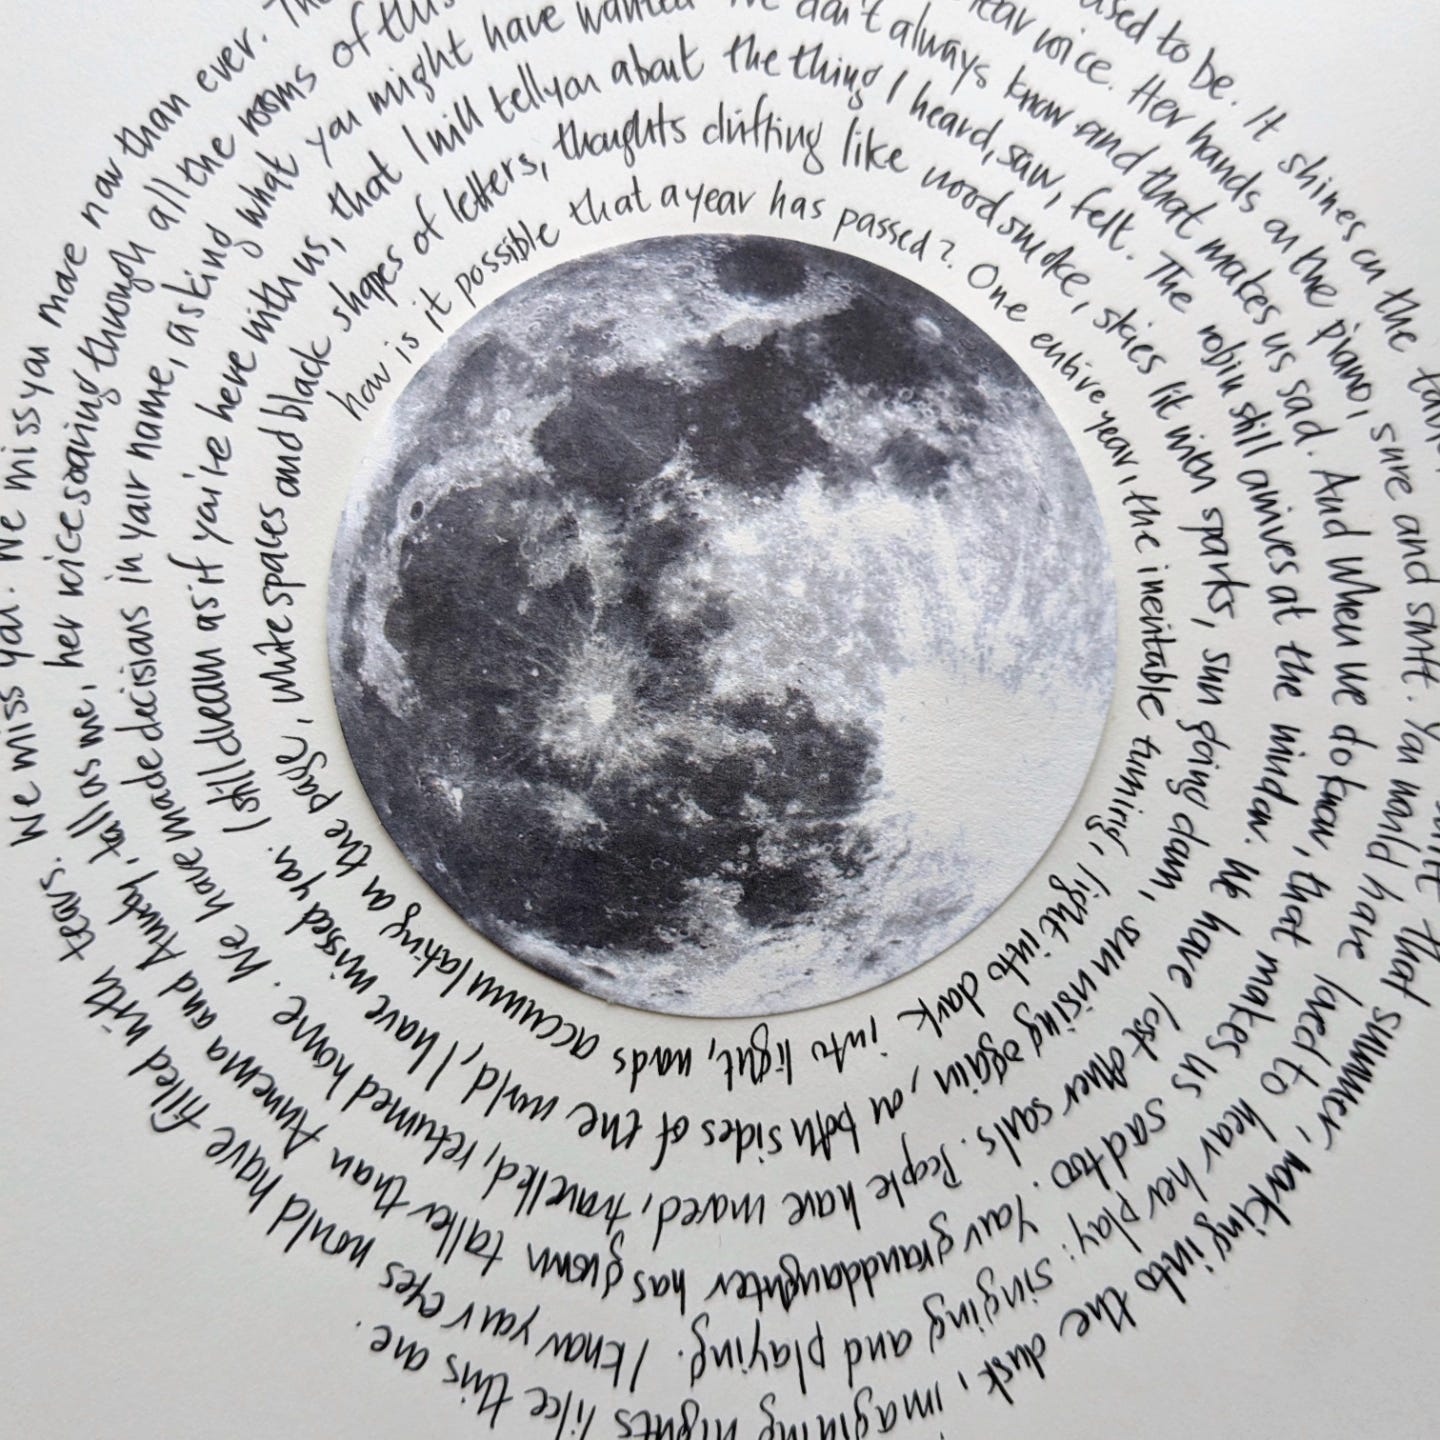 how is it possible that a year has passed? One entire year, the inevitable turning, light into dark into light, words accumulating on the page, white spaces and black
shapes of letters, thoughts drifting like woodsmoke, skies lit with sparks, sun going down, sun rising again, on both sides of the world, I have missed you. I still dream as if you're here with us,
that I will tell you about the thing I heard, saw, felt. The robin still arrives at the window. We have lost other souls. People have moved, travelled, returned home. We have made decisions in your name, asking
what you might have wanted We don't always know and that makes us sad. And when we do know, that makes us sad too. Your granddaughter has grown taller than and tall as me, her voice soaring through
all the rooms of this voice. Her hands on the piano, sure and swift. You would have loved to hear her play: singing and playing. I know your eyes would have filled with tears. We miss you. We miss you more
now than ever. used to be. It shines on the that summer, walking into the dusk, imagining nights like this one.